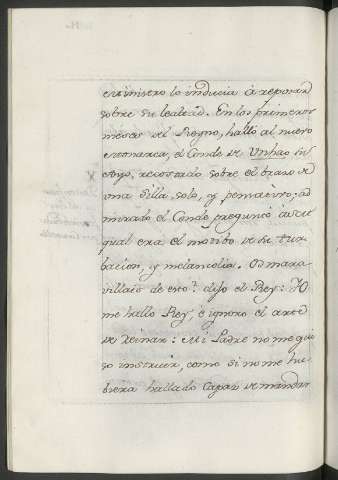 ministero lo inducia à reposar
sobre su lealtad. En los primeros
meses del Reyno, halló al nuevo
Monarca, el Conde de Unhao su
ayo, recostado sobre el brazo de
una silla, solo, y pensativo; ad
mirado el Conde preguntó
qual era el motibo de su tur
bacion, y melancolia. Os mara
villais de esto? dijo el Rey: Yo
me hallo Rey, è ignoro el arte
de Reinar: Mi Padre no me qui
so instruir, como si no me hu
biera hallado capaz de mandar